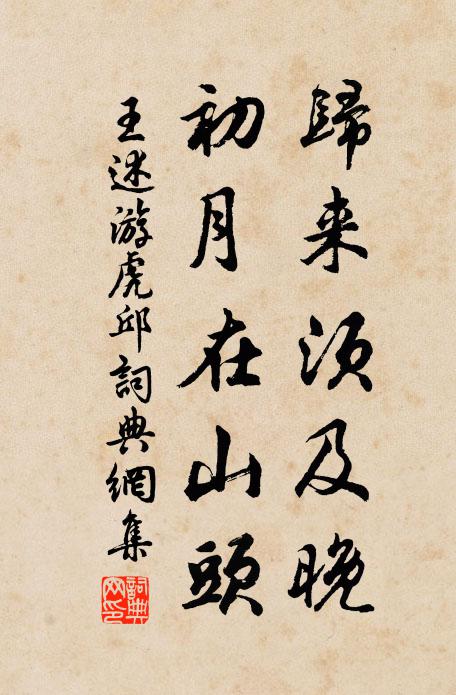 歸来須及晚
初月在山頭
王述游虎邱詞典網集
詞典网印